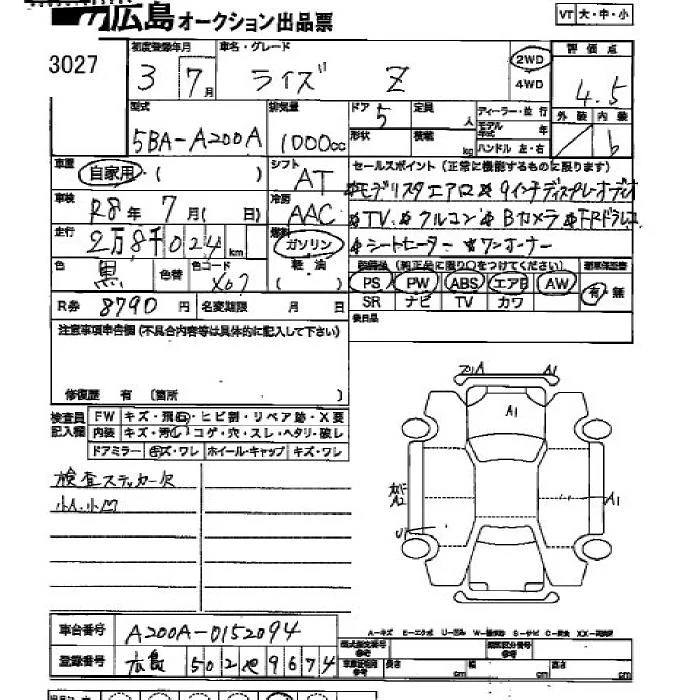 広島 オークション出品票
VT 大・中・小
3027
初度登録年月
3 7月
車名・グレード
ライズ Z
2WD
4WD
評価点
4.5
型式
5BA-A200A
排気量
1000cc
ドア 5
定員 人
形状
積載 kg
ディーラー・並行
モデル年式 年
ハンドル 左・右
外装 内装
b
車歴
自家用・( )
シフト
AT
セールスポイント(正常に機能するものに限ります)
車検
R8年 7月( 日)
冷房
AAC
※モデリスタエアロ ※9インチディスプレーオーディオ
※TV ※クルコン ※Bカメラ ※FRドラレコ
※シートヒーター ※ワンオーナー
走行
2万8千024km
燃料
ガソリン
軽・油
( )
色
黒
色替
色コード
X07
装備品(純正品に限り○をつけてください)
PS PW ABS エアB AW
SR ナビ TV カワ
有・無
R券 8790円
名変期限 月 日
後日品
注意事項申告欄(不具合内容等は具体的に記入して下さい)
修復歴 有 〔箇所 〕
検査員記入欄
FW キズ・飛石・ヒビ割・リペア跡・X要
内装 キズ・汚れ・コゲ・穴・スレ・ヘタリ・破レ
ドアミラー キズ・ワレ ホイール・キャップ キズ・ワレ
検査ステッカー欠
小A.小凹
A1
A1
A2
A1
車台番号 A200A-0152094
登録番号 広島 502 9674
A-キズ E-エクボ U-凹み W-補修跡 S-サビ C-腐食 XX-交換済
長さ cm 幅 cm 高さ cm